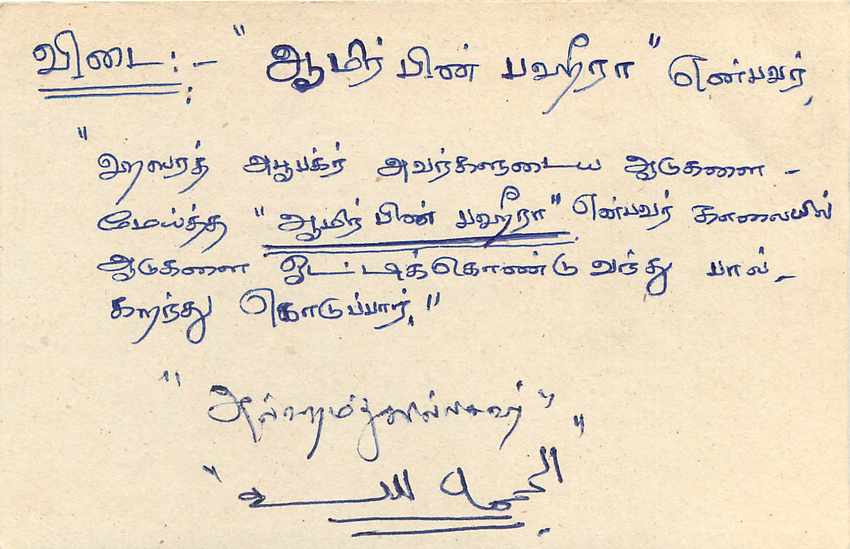 விடை:- "ஆமிர் பின் பஹீரா" என்பவர்,
"ஹஸரத் அபூபக்ர் அவர்களுடைய ஆடுகளை -
மேய்த்த "ஆமிர் பின் பஹீரா" என்பவர் காலையில்
ஆடுகளை ஓட்டிக்கொண்டு வந்து பால் -
கறந்து கொடுப்பார்."
"அல்ஹம்துலில்லாஹ்"
"الحمد لله"